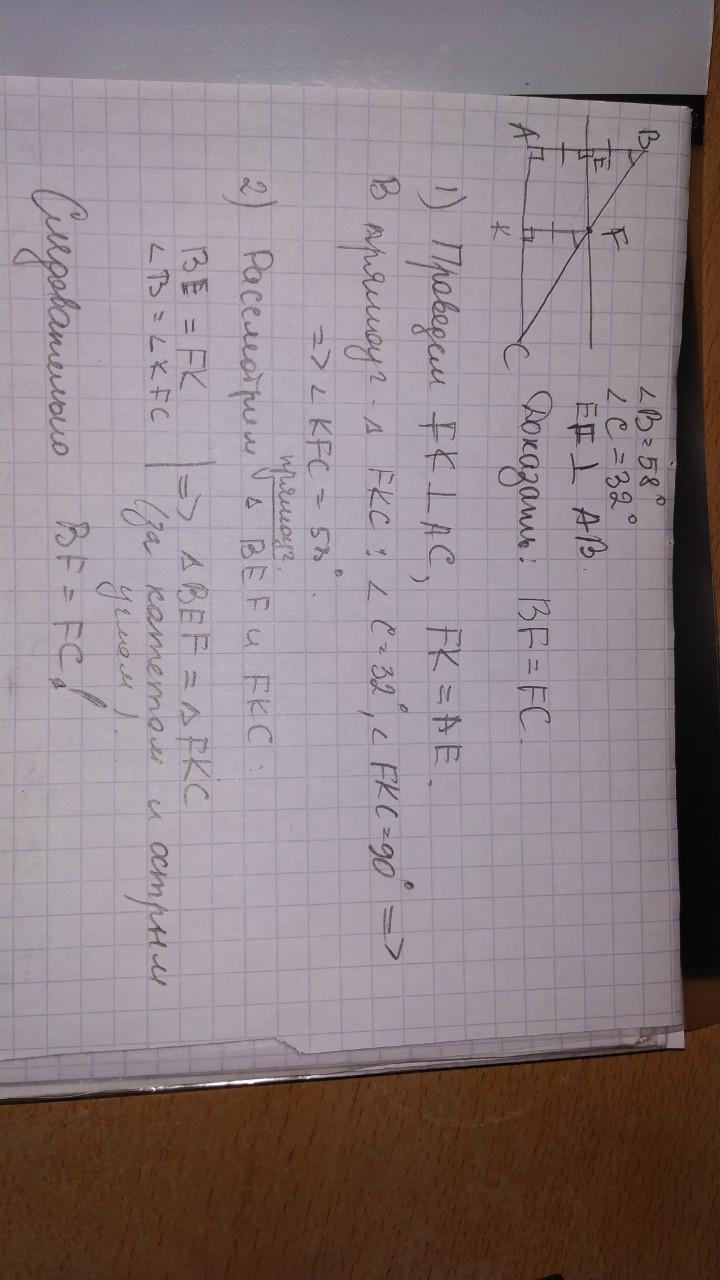 B
E
A
F
K
C
∠B = 58°
∠C = 32°
EF ⊥ AB.
Доказать: BF = FC.
1) Проведем FK ⊥ AC, FK = AE.
В прямоуг. Δ FKC: ∠C = 32°, ∠FKC = 90° =>
=> ∠KFC = 58°.
2) Рассмотрим прямоуг. Δ BEF и FKC:
BE = FK
∠B = ∠KFC | => Δ BEF = Δ FKC
(за катетом и острым
углом).
Следовательно BF = FC